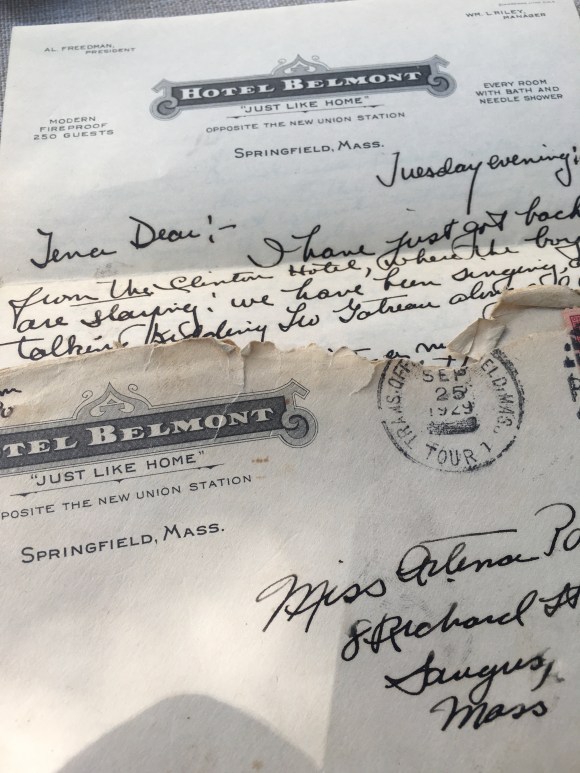 AL. FREEDMAN,
PRESIDENT
WM. L. RILEY,
MANAGER
HOTEL BELMONT
"JUST LIKE HOME"
OPPOSITE THE NEW UNION STATION
SPRINGFIELD, MASS.
MODERN
FIREPROOF
250 GUESTS
EVERY ROOM
WITH BATH AND
NEEDLE SHOWER
Tuesday evening:
Tena Dear:-
I have just got back
from the Clinton Hotel, where the boys
are staying; we have been singing,
talking
TEL BELMONT
"JUST LIKE HOME"
POSITE THE NEW UNION STATION
SPRINGFIELD, MASS.
SEP
25
1929
TOUR 1
Miss
8 Richard St
Saugus,
Mass